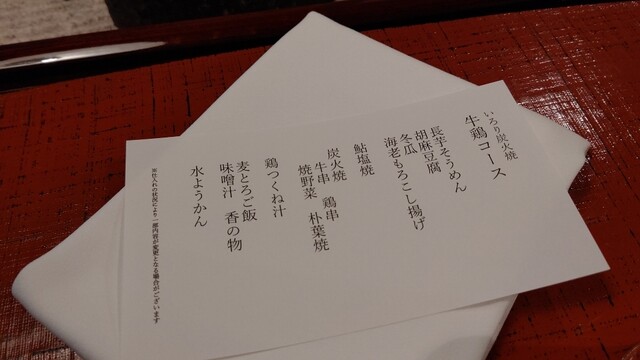 いろり炭火焼
牛鶏コース
長芋そうめん
胡麻豆腐
冬瓜
海老もろこし揚げ
鮎塩焼
炭火焼
牛串 鶏串
焼野菜 朴葉焼
鶏つくね汁
麦とろご飯
味噌汁 香の物
水ようかん
※仕入れの状況により一部内容が変更となる場合がございます